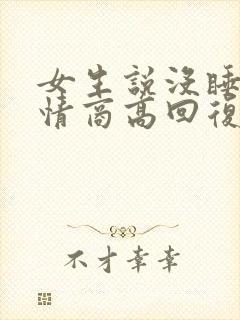 女生說沒睡
情商高回復
不才幸幸